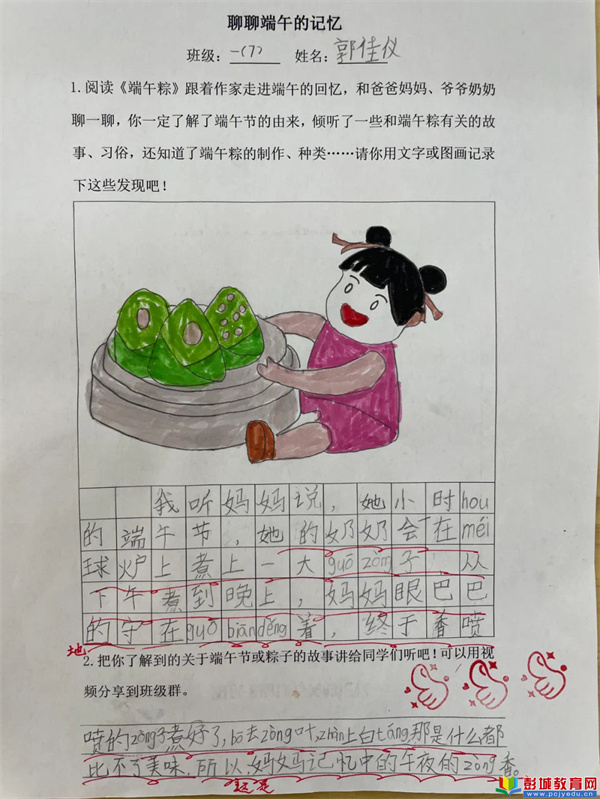 聊聊端午的记忆
班级：一(7) 姓名：郭佳仪
1.阅读《端午粽》跟着作家走进端午的回忆，和爸爸妈妈、爷爷奶奶
聊一聊，你一定了解了端午节的由来，倾听了一些和端午粽有关的故
事、习俗，还知道了端午粽的制作、种类……请你用文字或图画记录
下这些发现吧！
我听妈妈说，她小时hou
的端午节，她的奶奶会在méi
球炉上煮上一大guō zòng子 从
下午煮到晚上，妈妈眼巴巴
的守在guō biān děng着，终于香喷
地
2.把你了解到的关于端午节或粽子的故事讲给同学们听吧！可以用视
频分享到班级群。
喷的zòng子煮好了，bō去zòng叶，zhàn上白táng，那是什么都
比不了美味，所以，妈妈记忆中的午夜的zòng香。
这是
彭城教育网
www.pcjyedu.cn